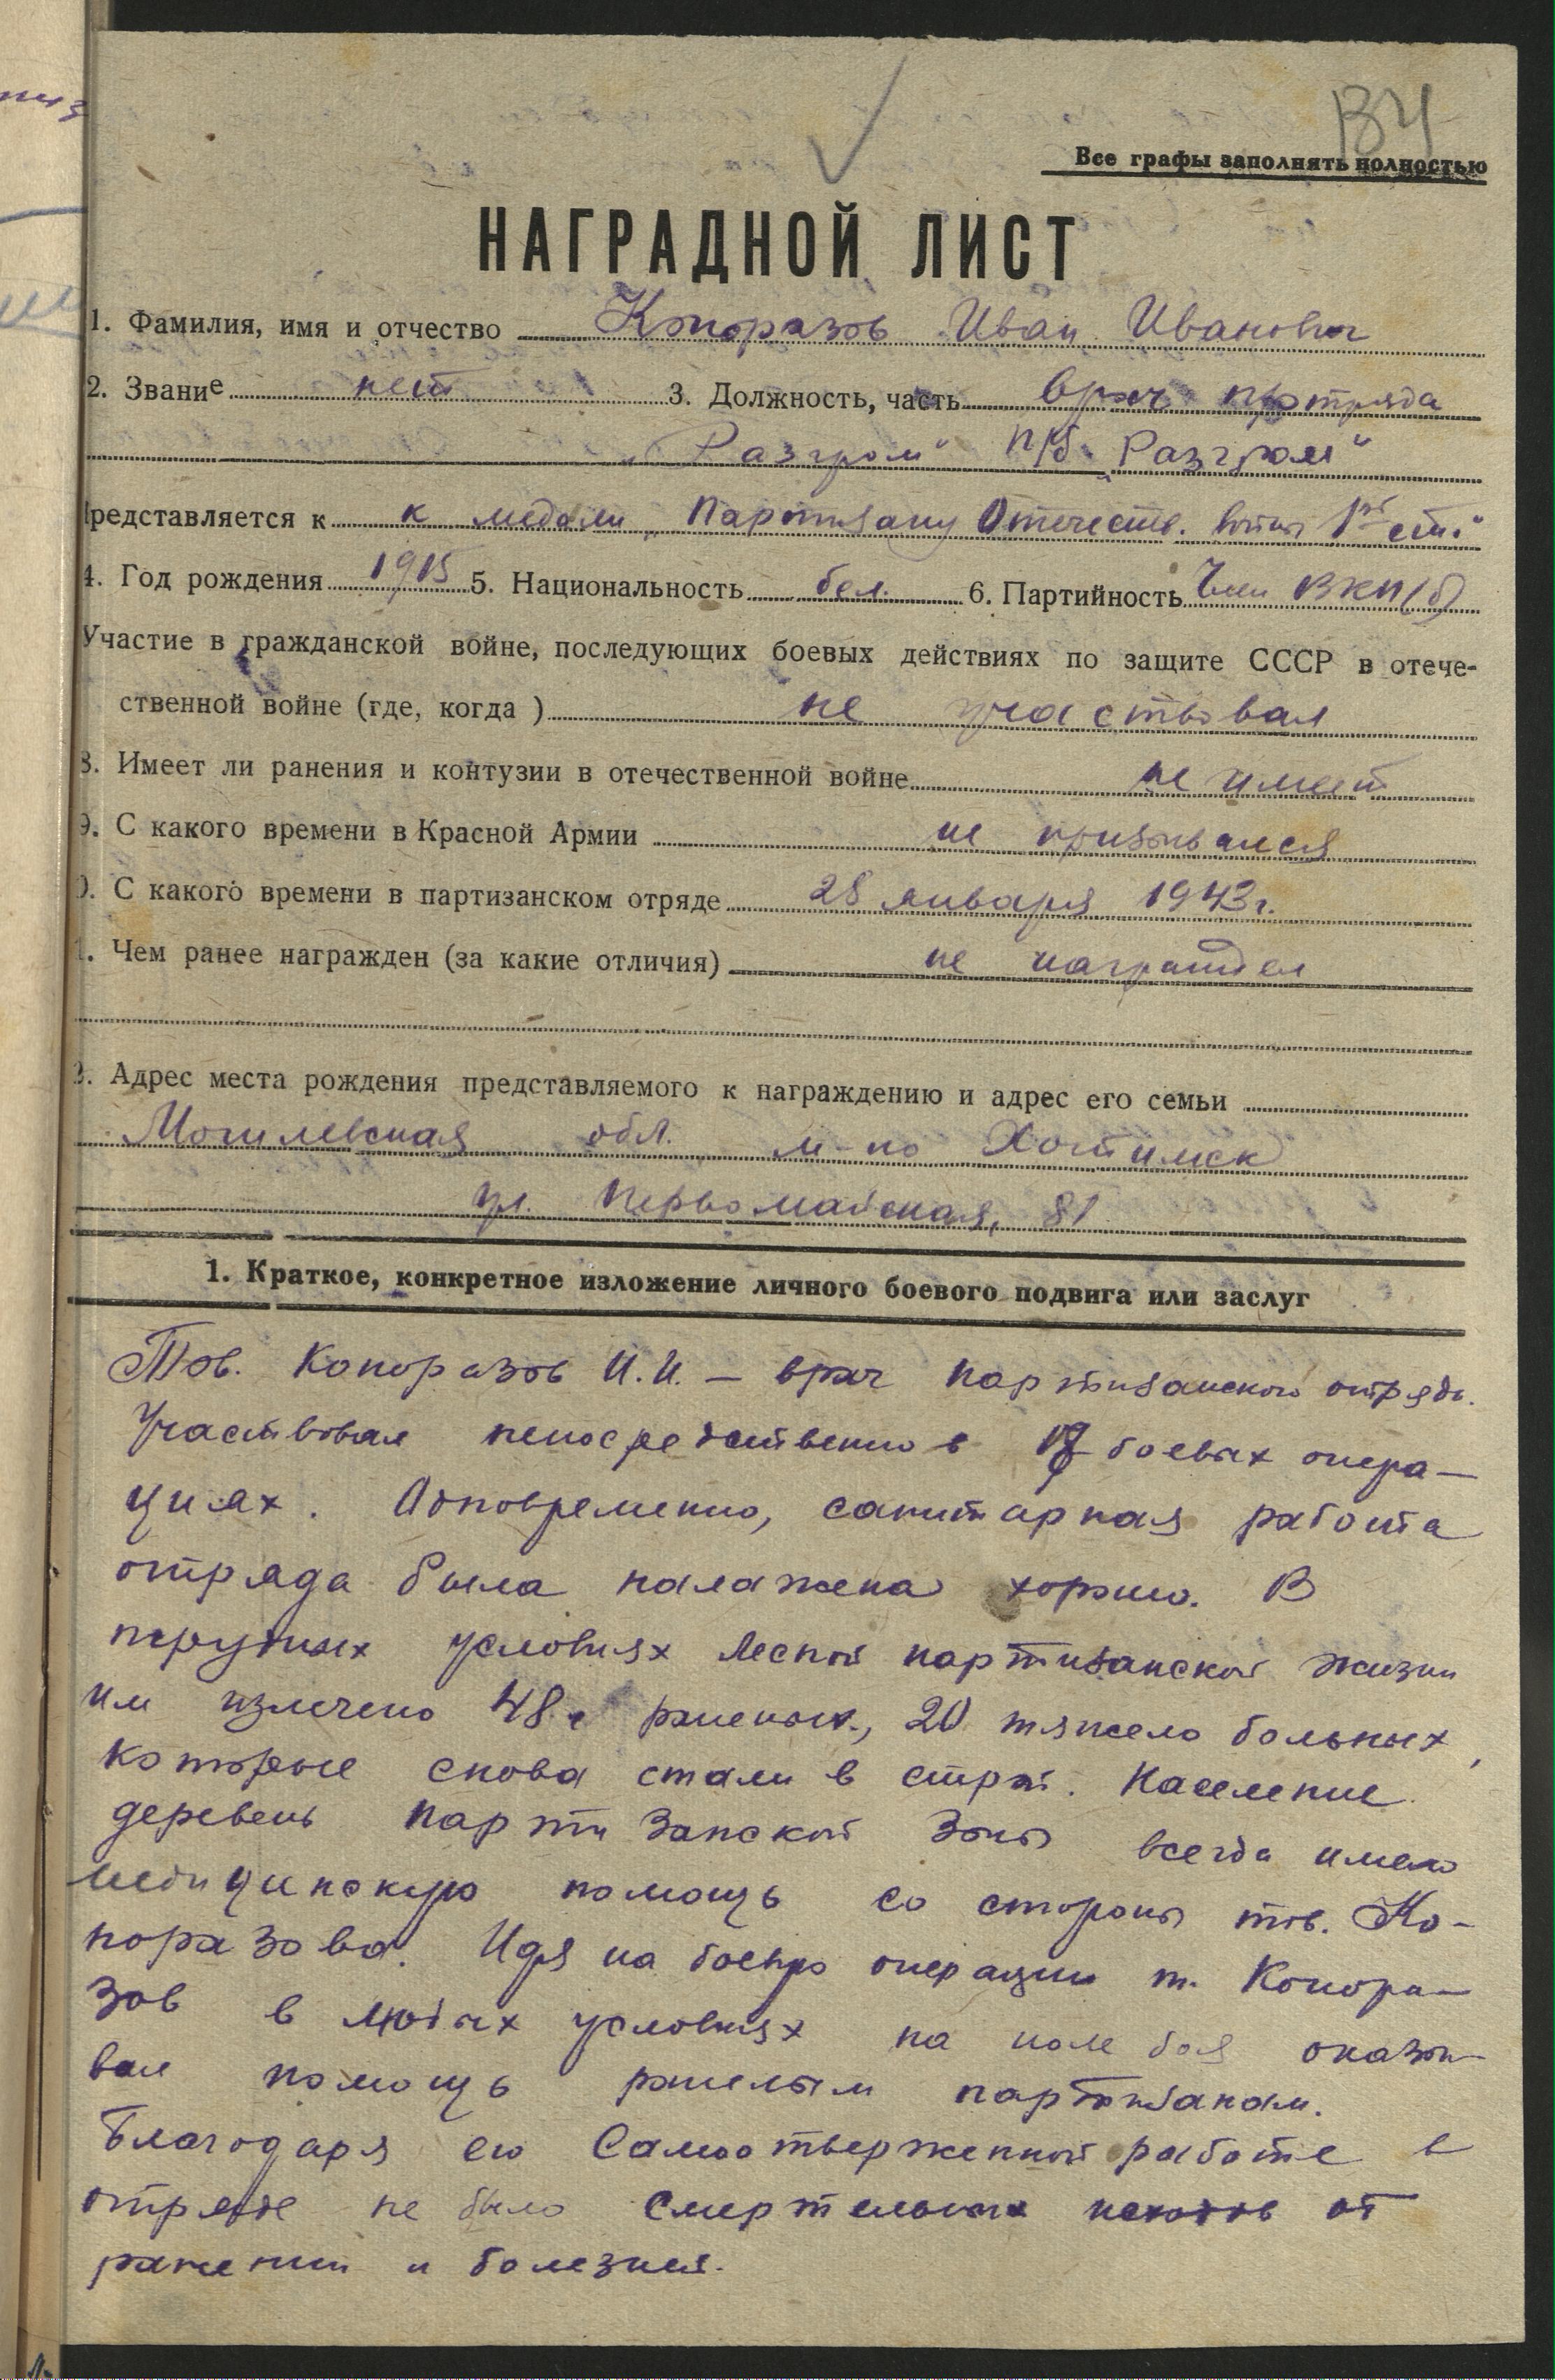 ВЧ
Все графы заполнять полностью
НАГРАДНОЙ ЛИСТ
1. Фамилия, имя и отчество Копоразов Иван Иванович
2. Звание нет 3. Должность, часть врач п/отряда
„Разгром" п/б. „Разгром"
редставляется к к медали „Партизану Отечеств. войны 1ой ст."
4. Год рождения 1915 5. Национальность бел. 6. Партийность Член ВКП(б)
Участие в гражданской войне, последующих боевых действиях по защите СССР в отече-
ственной войне (где, когда ) не участвовал
8. Имеет ли ранения и контузии в отечественной войне не имеет
9. С какого времени в Красной Армии не призывался
0. С какого времени в партизанском отряде 28 января 1943 г.
1. Чем ранее награжден (за какие отличия) не награжден
2. Адрес места рождения представляемого к награждению и адрес его семьи
Могилевская обл. м-ко Хотимск
ул. Первомайская, 81
1. Краткое, конкретное изложение личного боевого подвига или заслуг
Тов. Копоразов И.И. — врач партизанского отряда.
Участвовал непосредственно в боевых опера—
циях. Одновременно, санитарная работа
отряда была налажена хорошо. В
трудных условиях лесной партизанской жизни
им излечено 48 раненых, 20 тяжело больных,
которые снова стали в строй. Население
деревень партизанской зоны всегда имело
медицинскую помощь со стороны тов. Ко-
поразова. Идя на боевую операцию т. Копора—
зов в любых условиях на поле боя оказы—
вал помощь раненым партизанам.
Благодаря его самоотверженной работе в
отряде не было смертельных исходов от
ранений и болезней.